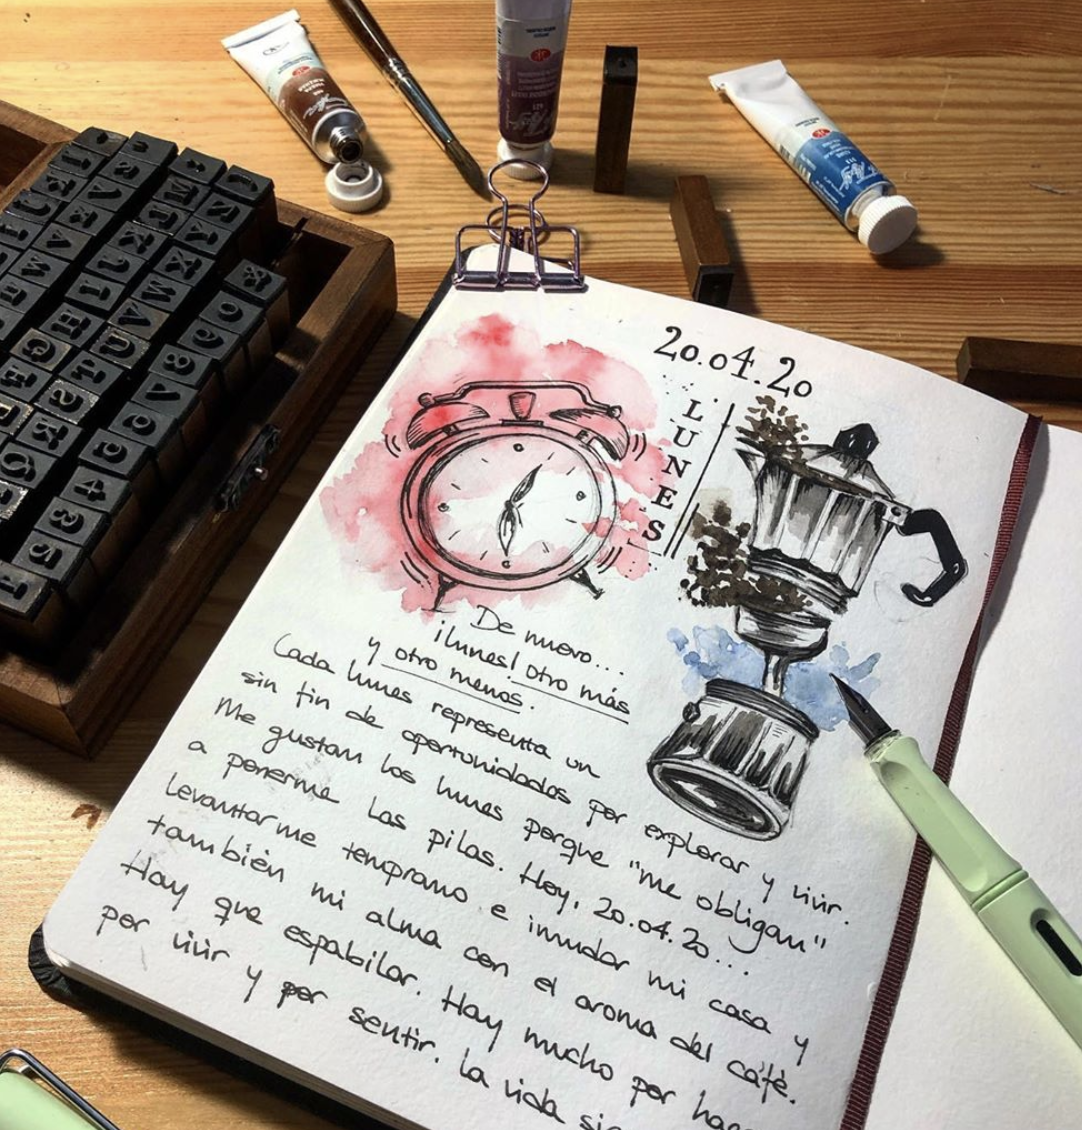 20.04.20
LUNES
De nuevo...
¡lunes! otro más
y otro menos.
Cada lunes representa un
sin fin de oportunidades por explorar y vivir.
Me gustan los lunes porque "me obligan"
a ponerme las pilas. Hoy, 20.04.20...
levantarme temprano e inundar mi casa y
también mi alma con el aroma del café.
Hay que espabilar. Hay mucho por
por vivir y por sentir. La vida